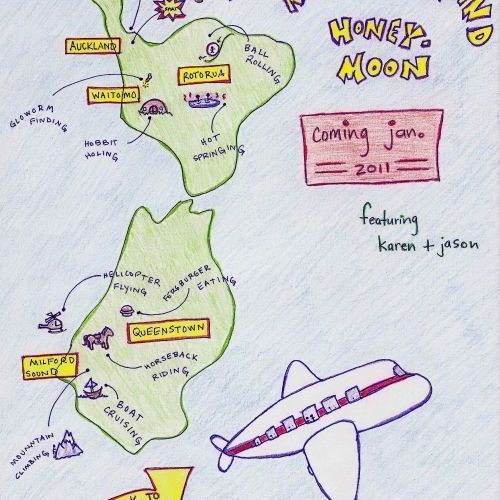 HONEY-
MOON
AUCKLAND
BALL
ROLLING
ROTORUA
WAITOMO
GLOWORM
FINDING
HOBBIT
HOLING
HOT
SPRINGING
Coming jan.
2011
featuring
karen + jason
HELICOPTER
FLYING
FERGBURGER
EATING
QUEENSTOWN
HORSEBACK
RIDING
MILFORD
SOUND
BOAT
CRUISING
MOUNTAIN
CLIMBING
TO